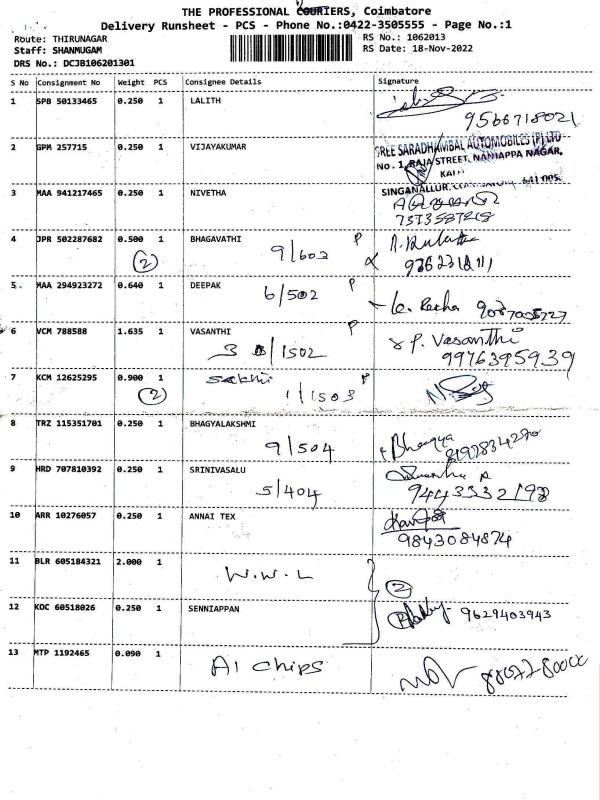 THE PROFESSIONAL COURIERS, Coimbatore
Delivery Runsheet - PCS - Phone No.:0422-3505555 - Page No.:1
Route: THIRUNAGAR
RS No.: 1062013
Staff: SHANMUGAM
RS Date: 18-Nov-2022
DRS No.: DCJB106201301
S No Consignment No Weight PCS Consignee Details Signature
1 SPB 50133465 0.250 1 LALITH
9566718021
2 GPM 257715 0.250 1 VIJAYAKUMAR
SREE SARADHAMBAL AUTOMOBILES (P) LTD
No. 1, RAJA STREET, NANJAPPA NAGAR,
3 MAA 941217465 0.250 1 NIVETHA
SINGANALLUR, 641 005.
4 JPR 502287682 0.500 1 BHAGAVATHI
(2) 9/602 P
5. MAA 294923272 0.640 1 DEEPAK
6/502 P
6 VCM 788588 1.635 1 VASANTHI
3 /1502 P P. Vasanthi
9976395939
7 KCM 12625295 0.900 1 Sakthi
(2) 1/1503 P
8 TRZ 115351701 0.250 1 BHAGYALAKSHMI
9/504 Bhagya
9 HRD 707810392 0.250 1 SRINIVASALU
5/404 9443332198
10 ARR 10276057 0.250 1 ANNAI TEX
9843084874
11 BLR 605184321 2.000 1 W.W.L
(2)
12 KOC 60518026 0.250 1 SENNIAPPAN
9629403943
13 MTP 1192465 0.090 1 A1 Chips